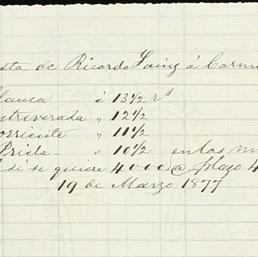 sta de Ricardo Sainz á Carm
lanca á 13½ rs
ntreverada „ 12½
orriente „ 11½
Prieta „ 10½ en las m
si se quiere 4000 @ plazo 4
19 de Marzo 1877